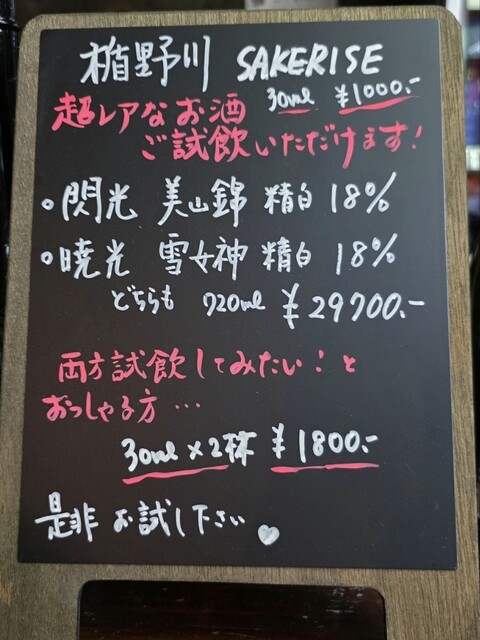 楯野川 SAKERISE
30ml ¥1000.-
超レアなお酒
ご試飲いただけます!
○閃光 美山錦 精白 18%
○暁光 雪女神 精白 18%
どちらも 720ml ¥29700.-
両方試飲してみたい!と
おっしゃる方…
30ml×2杯 ¥1800.-
是非お試し下さい♡